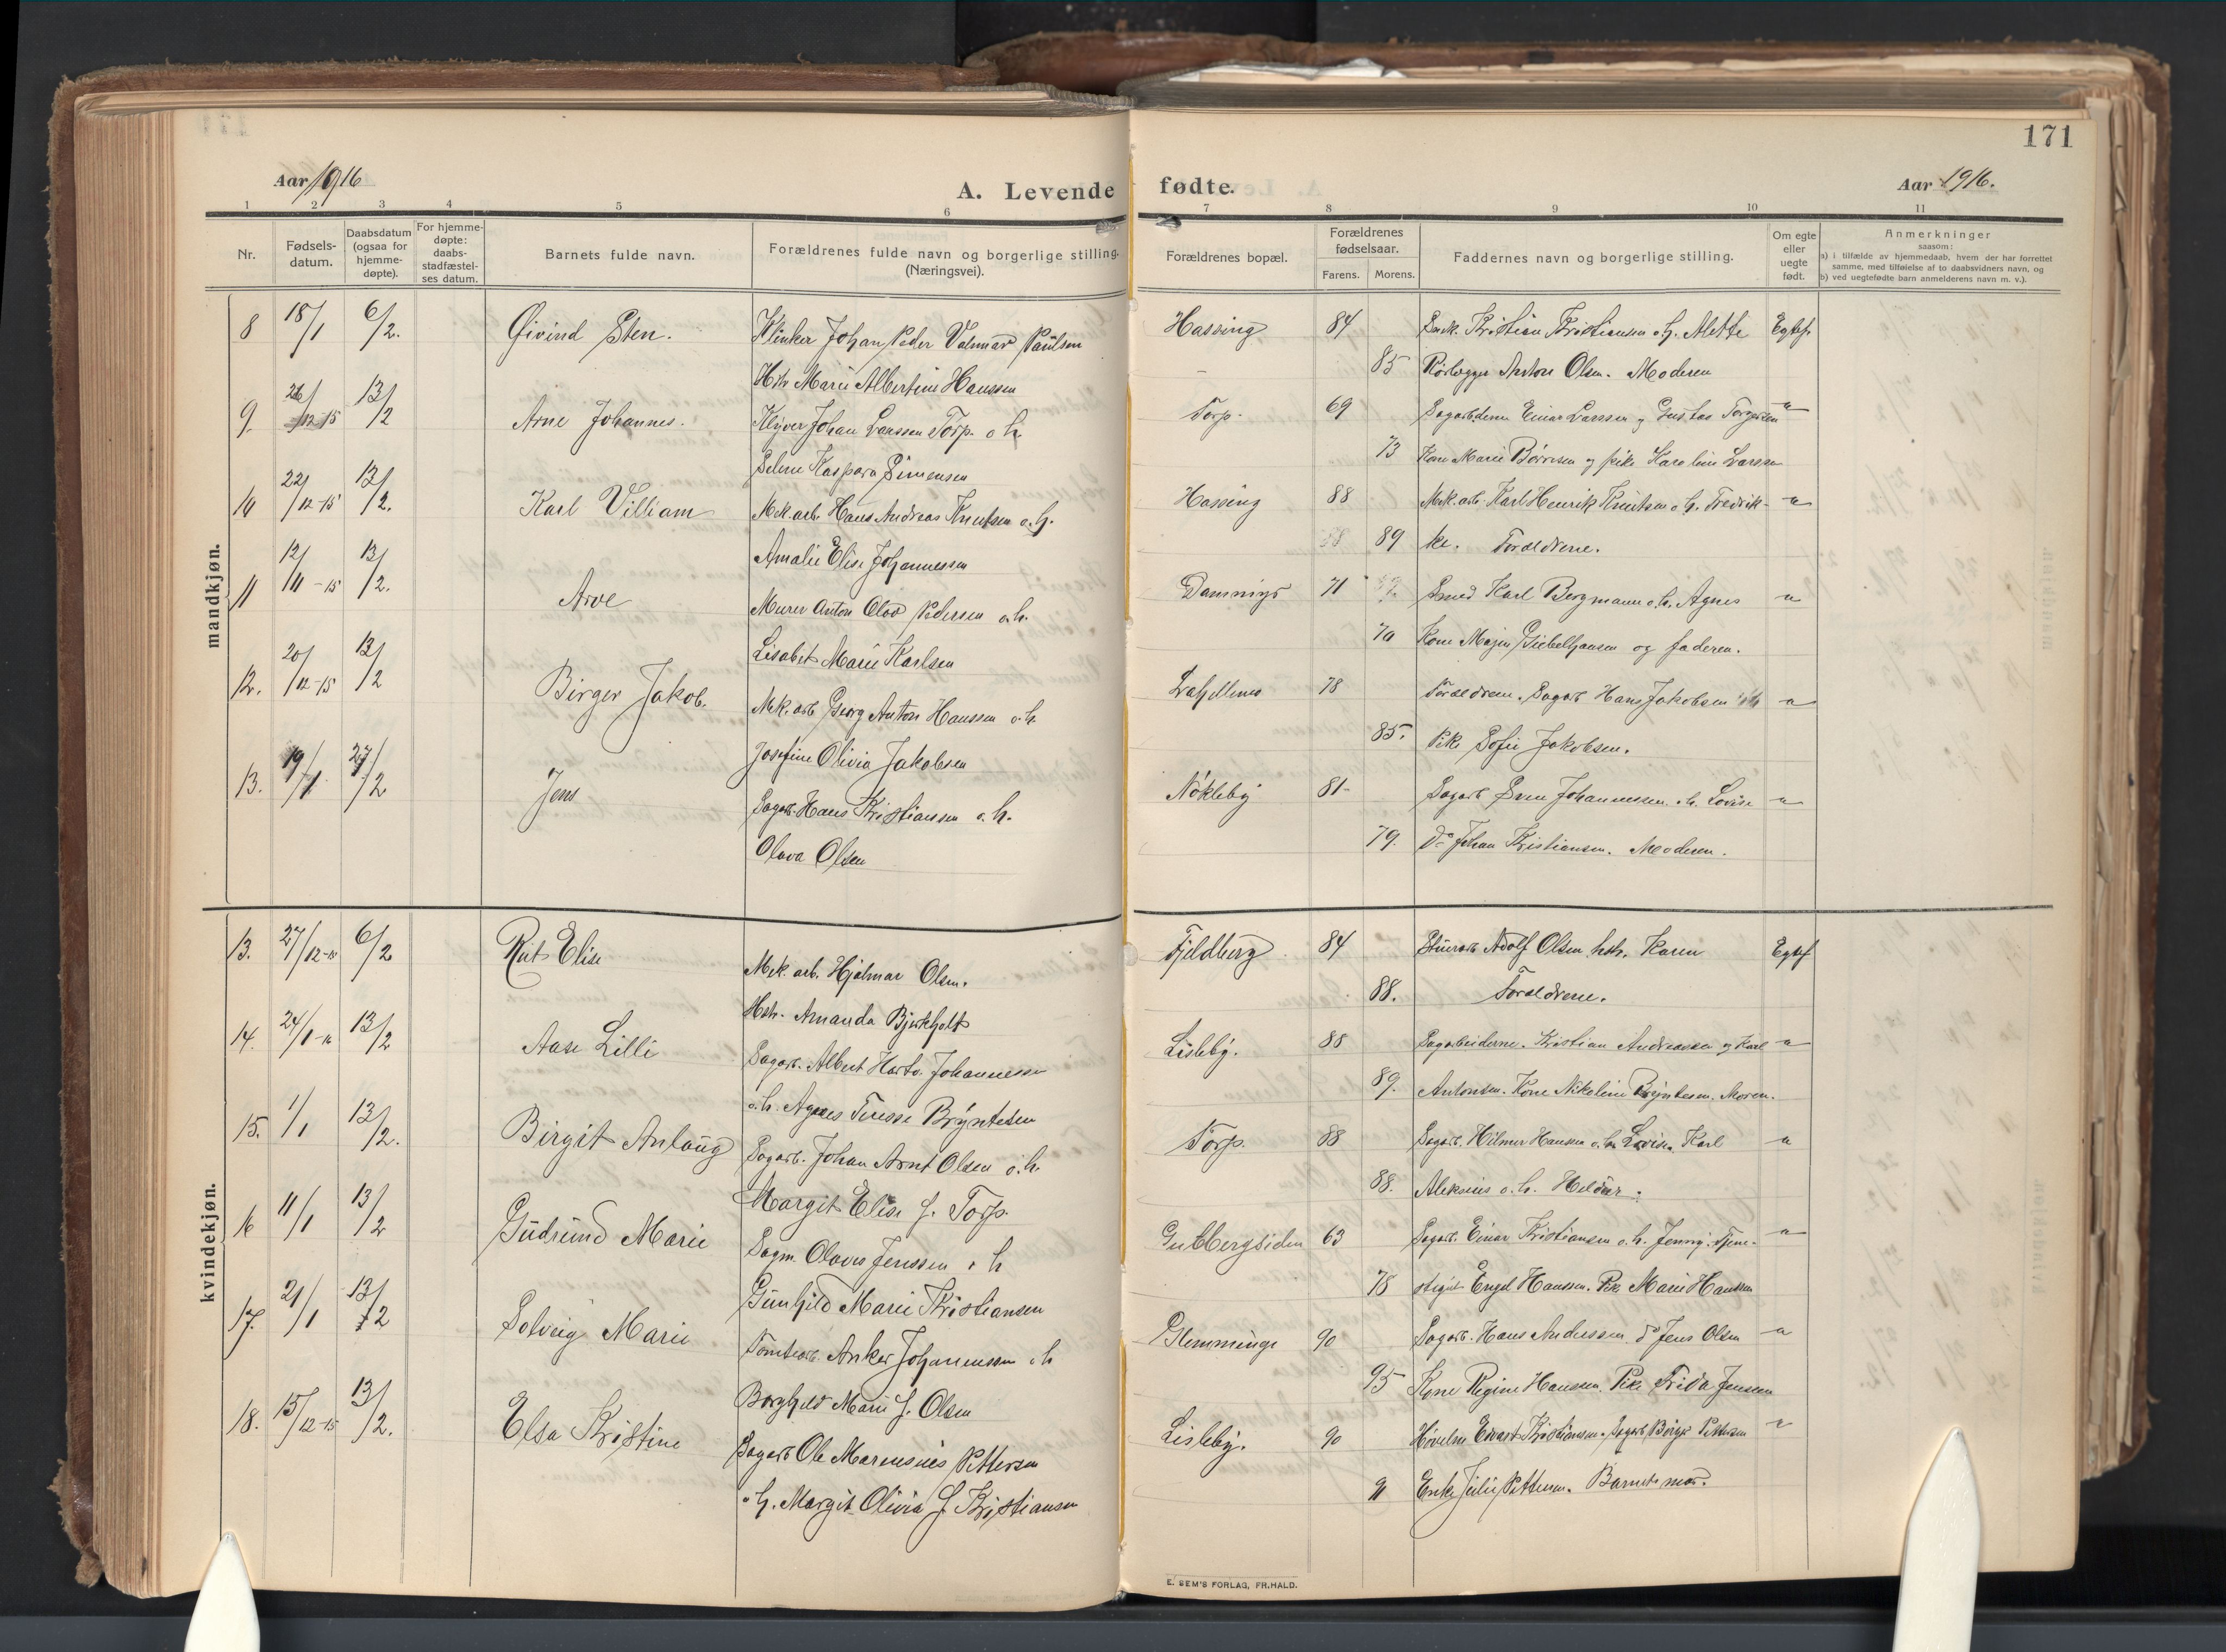 171
Aar 1916
A. Levende fødte.
Aar 1916.
1 2 3 4 5 6 7 8 9 10 11
Nr.
Fødsels-
datum.
Daabsdatum
(ogsaa for
hjemme-
døpte).
For hjemme-
døpte:
daabs-
stadfæstel-
ses datum.
Barnets fulde navn.
Forældrenes fulde navn og borgerlige stilling.
(Næringsvei).
Forældrenes bopæl.
Forældrenes
fødselsaar.
Farens. Morens.
Faddernes navn og borgerlige stilling.
Om egte
eller
uegte
født.
Anmerkninger
saasom:
a) i tilfælde av hjemmedaab, hvem der har forrettet
samme, med tilføielse af to daabsvidners navn, og
b) ved uegtefødte barn anmelderens navn m. v.).
mandkjøn.
8 18/1 6/2. Øivind Sten. Klinker Johan Peder Valmar Paulsen Hassing 84 Kristian Kristiansen o. h. Alette Egtef.
Hstr Marie Albertine Hanssen 85 Rørlægger Anton Olsen. Moderen
9. 26/12-15 13/2 Arne Johannes. Klyver Johan Larssen Torp. o h. Torp. 69 Sagarbderne Einar Larssen og Gustav Torgersen "
Selene Kaspara Simensen 73 Kone Marie Børresen og pike Karoline Larssen
10 22/12-15 13/2. Karl Villiam Mek. arb. Hans Andreas Knutsen o. h. Hassing 88 Mek. arb. Karl Henrik Knutsen o. h. Fredrik- "
Amalie Elise Johannessen 89 ke. Forældrene.
11 12/11-15 13/2. Arve Murer Anton Olav Pedersen o. h. 71 Smed Karl Bergmann o. h. Agnes "
Lisabet Marie Karlsen 70 Kone Majen Giebelhausen og faderen.
12. 20/12-15 13/2 Birger Jakob. Mek. arb Georg Anton Hanssen o. h. 78 Forældrene. Sagarb Hans Jakobsen "
Josefine Olivia Jakobsen 85. Pike Sofie Jakobsen.
13. 19/1 27/2 Jens Sagarb. Hans Kristiansen o. h. Nökleby 81- Sagarb Sven Johannessen o. h. Lovise "
Olava Olsen 79. Do Johan Kristiansen. Moderen.
kvindekjøn.
13. 27/12-15 6/2 Rut Elise Mek. arb. Hjalmar Olsen. Fjeldberg 84 Adolf Olsen hstr. Karen Egtef
Hstr. Amanda Bjerkholt 88. Forældrene.
14. 24/1-16 13/2 Aase Lilli Sagarb. Albert Hartv. Johannessen Lisleby. 88 Sagarbeiderne. Kristian Andreassen og Karl "
o. h. Agnes Teresse Bryntesen 89. Antonsen. Kone Nikoline Bryntesen. Moren.
15. 1/1 13/2. Birgit Anlaug Sagarb. Johan Arnt Olsen o. h. Torp. 88 Sagarb. Hilmer Hansen o. h. Lovise. Karl "
Margit Elise f. Torp. 88. Aleksius o. h. Heldur.
16 11/1 13/2 Gudrund Marie Sagm. Olaves Jenssen o h Gubbergsiden 63 Sagarb. Einar Kristiansen o. h. Jenny. Tjene- "
Gunhild Marie Kristiansen 78 stepit Engel Hanssen. Pke Marie Hanssen
17. 21/1 13/2 Solveig Marie Tomtearb. Anker Johannessen o h Glemminge 90 Sagarb. Hans Anderssen. Do Jens Olsen "
Borghild Marie f. Olsen 95 Kone Regine Hanssen. Pike Frida Jenssen
18. 15/12-15 13/2. Elsa Kristine Sagarb Ole Marensius Pettersen Lisleby. 90 Høvelm Evart Kristiansen. Sagarb Börge Pettersen "
o. h. Margit Olivia f. Kristiansen 91 Enke Julie Pettersen. Barnets mor.
E. SEM'S FORLAG, FR.HALD.